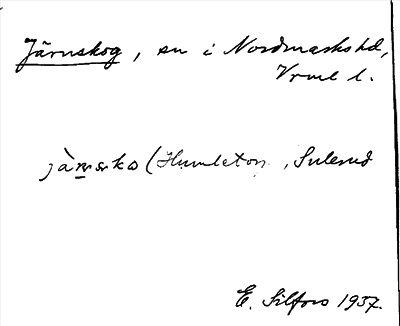 Järnskog, sn i Nordmarks hd,
Vrml l.
(Humleton, Sulerud
E. Silfors 1937.